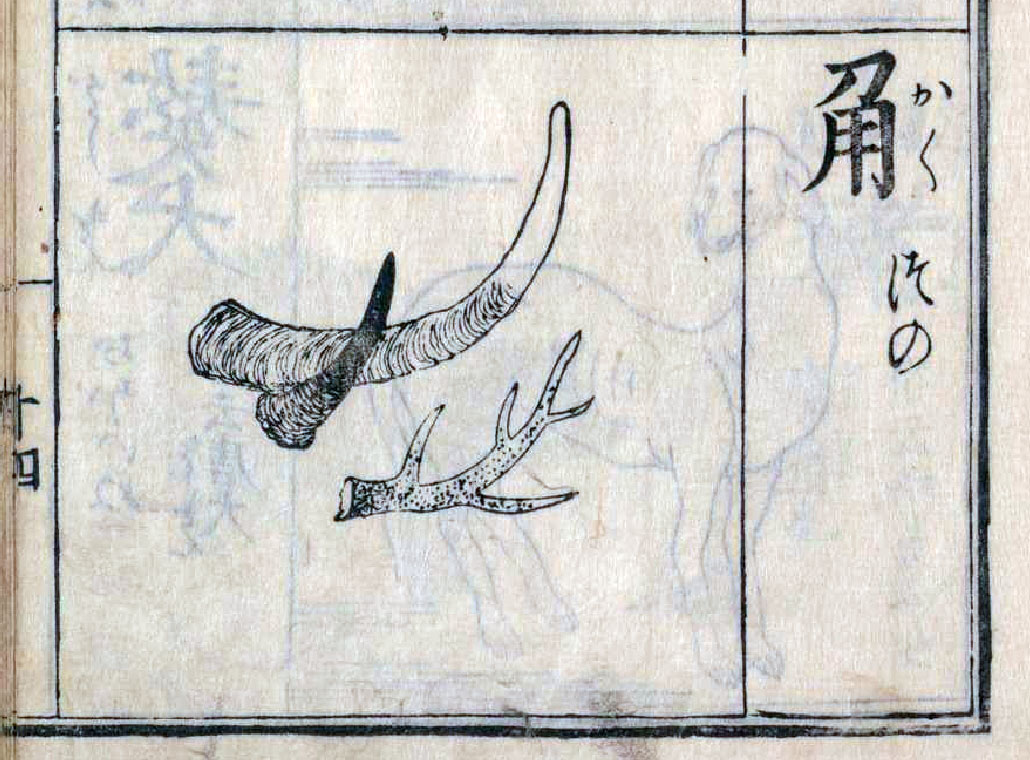 角
かく
つの
十四